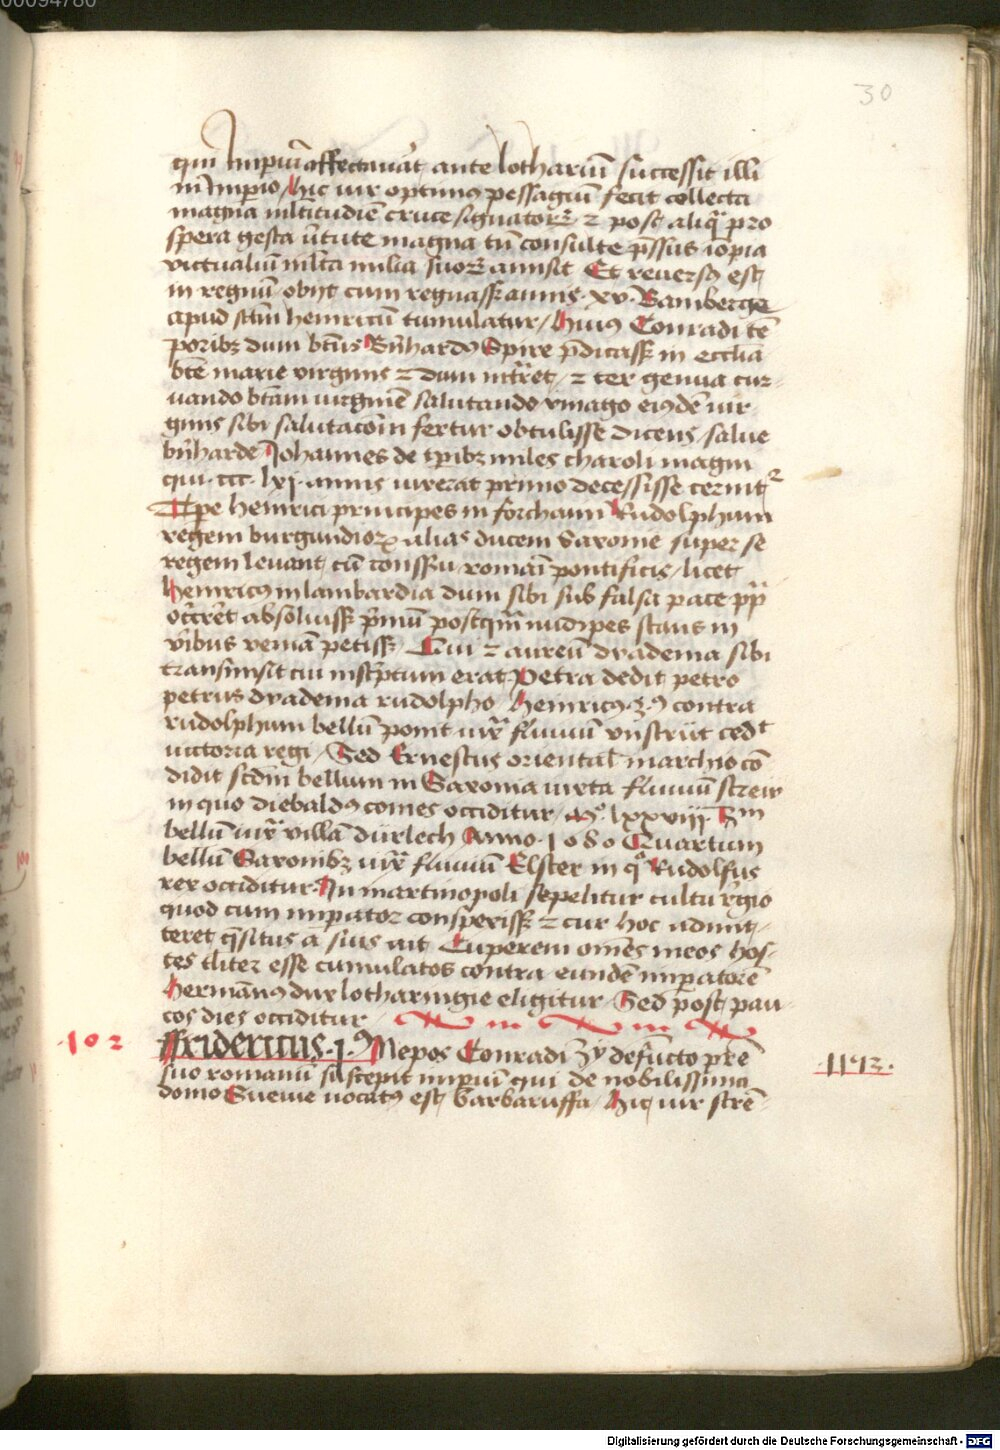 00094780
30
qui Imperiū affectauāt ante lotharium successit illi
in Imperio / hic vir optimus passagiū fecit collecta
magna mltitudīe cruce signatorꝝ ⁊ post aliqͣ pro
spera gesta v̄tute magna tn̄ consulte p̄ssus īopia
victualiū mlta milia suorꝝ amisit Et reuersꝰ est
in regnū obijt cum regnass; annis xv Bamberge
apud sctm̄ heinricū tumulatur / huius Conradi tē
poribꝫ dum btūs Bn̄hardꝰ Spire p̄dicass; in eccliā
btē marie virginis ⁊ dum intͣret / ⁊ ter genua cur
uando btām virginē salutando ymago eiusdē vir
ginis sibi salutacōm fertur obtulisse dicens salue
bn̄harde Johannes de tp̄ribꝫ miles charoli magni
qui ccc lxj annis vixerat primo decessisse cernitᷣ
Tpe heinrici principes in forchaim Rudolphum
regem burgundiorꝝ alias ducem Saxonie super se
regem leuant cū conssu romāi pontificis / licet
heinricus in lambardia dum sibi sub falsa pace pp̄
occ̄ret absoluiss; p̄mū postqm̄ nudipes stans in
v̄ibus veniā petiss; Cui ⁊ aureū dyadema sibi
transmisit cui inscͥptum erat Petra dedit petro
petrus dyadema rudolpho heinricꝰ 3ꝰ contra
rudolphum bellū ponit iuxͣ fluuiū vnstrüt cedᵗ
victoria regi / Sed Ernestus oriental' marchio cō
didit scdm̄ bellum in Saxonia iuxta fluuiū streiv
in quo diebaldꝰ comes occiditur Aº lxxviij 3m
bellū iuxͣ villā dürlech Anno 1080 Quartum
bellū Saxonibꝫ iuxͣ fluuiū Elster in qͦ Rudolfus
rex occiditur In martinopoli sepelitur cultu r̄gio
quod cum impator conspexiss; ⁊ cur hoc admit
teret q̄situs a suis ait Cuperem omēs meos hos
tes tliter esse cumulatos contra eundē impatorē
hermānꝰ dux lotharingie eligitur Sed post pau
cos dies occiditur
102
ffridericus .j.ꝰ Nepos Conradi 3ij defūcto pr̄e
1193.
suo romanū suscepit imperiū qui de nobilissima
domo Sueuie vocatꝰ est barbarussa / hic vir strē
Digitalisierung gefördert durch die Deutsche Forschungsgemeinschaft - DFG